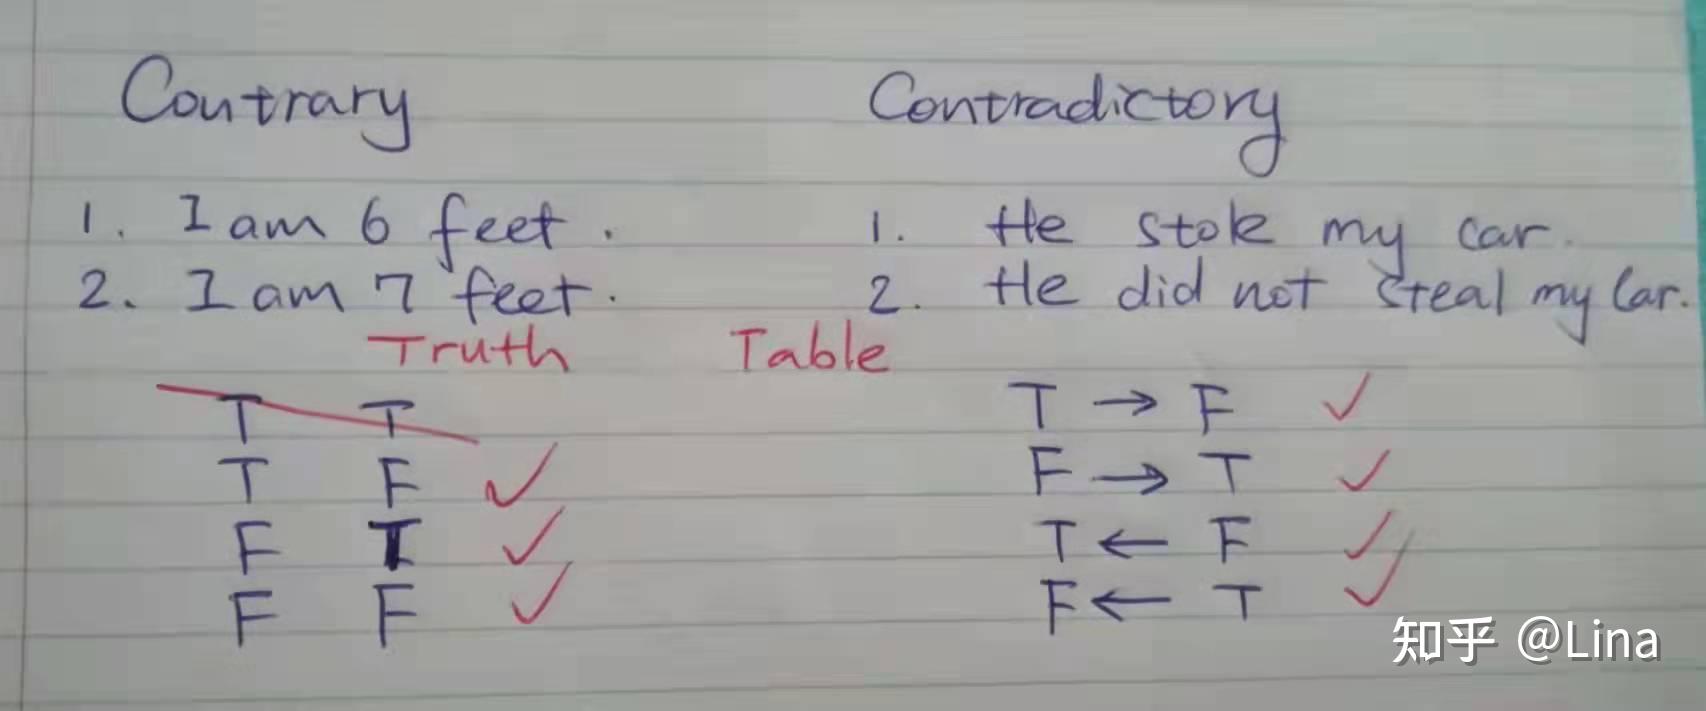 Contrary
1. I am 6 feet.
2. I am 7 feet.
Contradictory
1. He stole my car.
2. He did not steal my car.
Truth Table
T T
T F ✓
F T ✓
F F ✓
T → F ✓
F → T ✓
T ← F ✓
F ← T ✓
知乎 @Lina